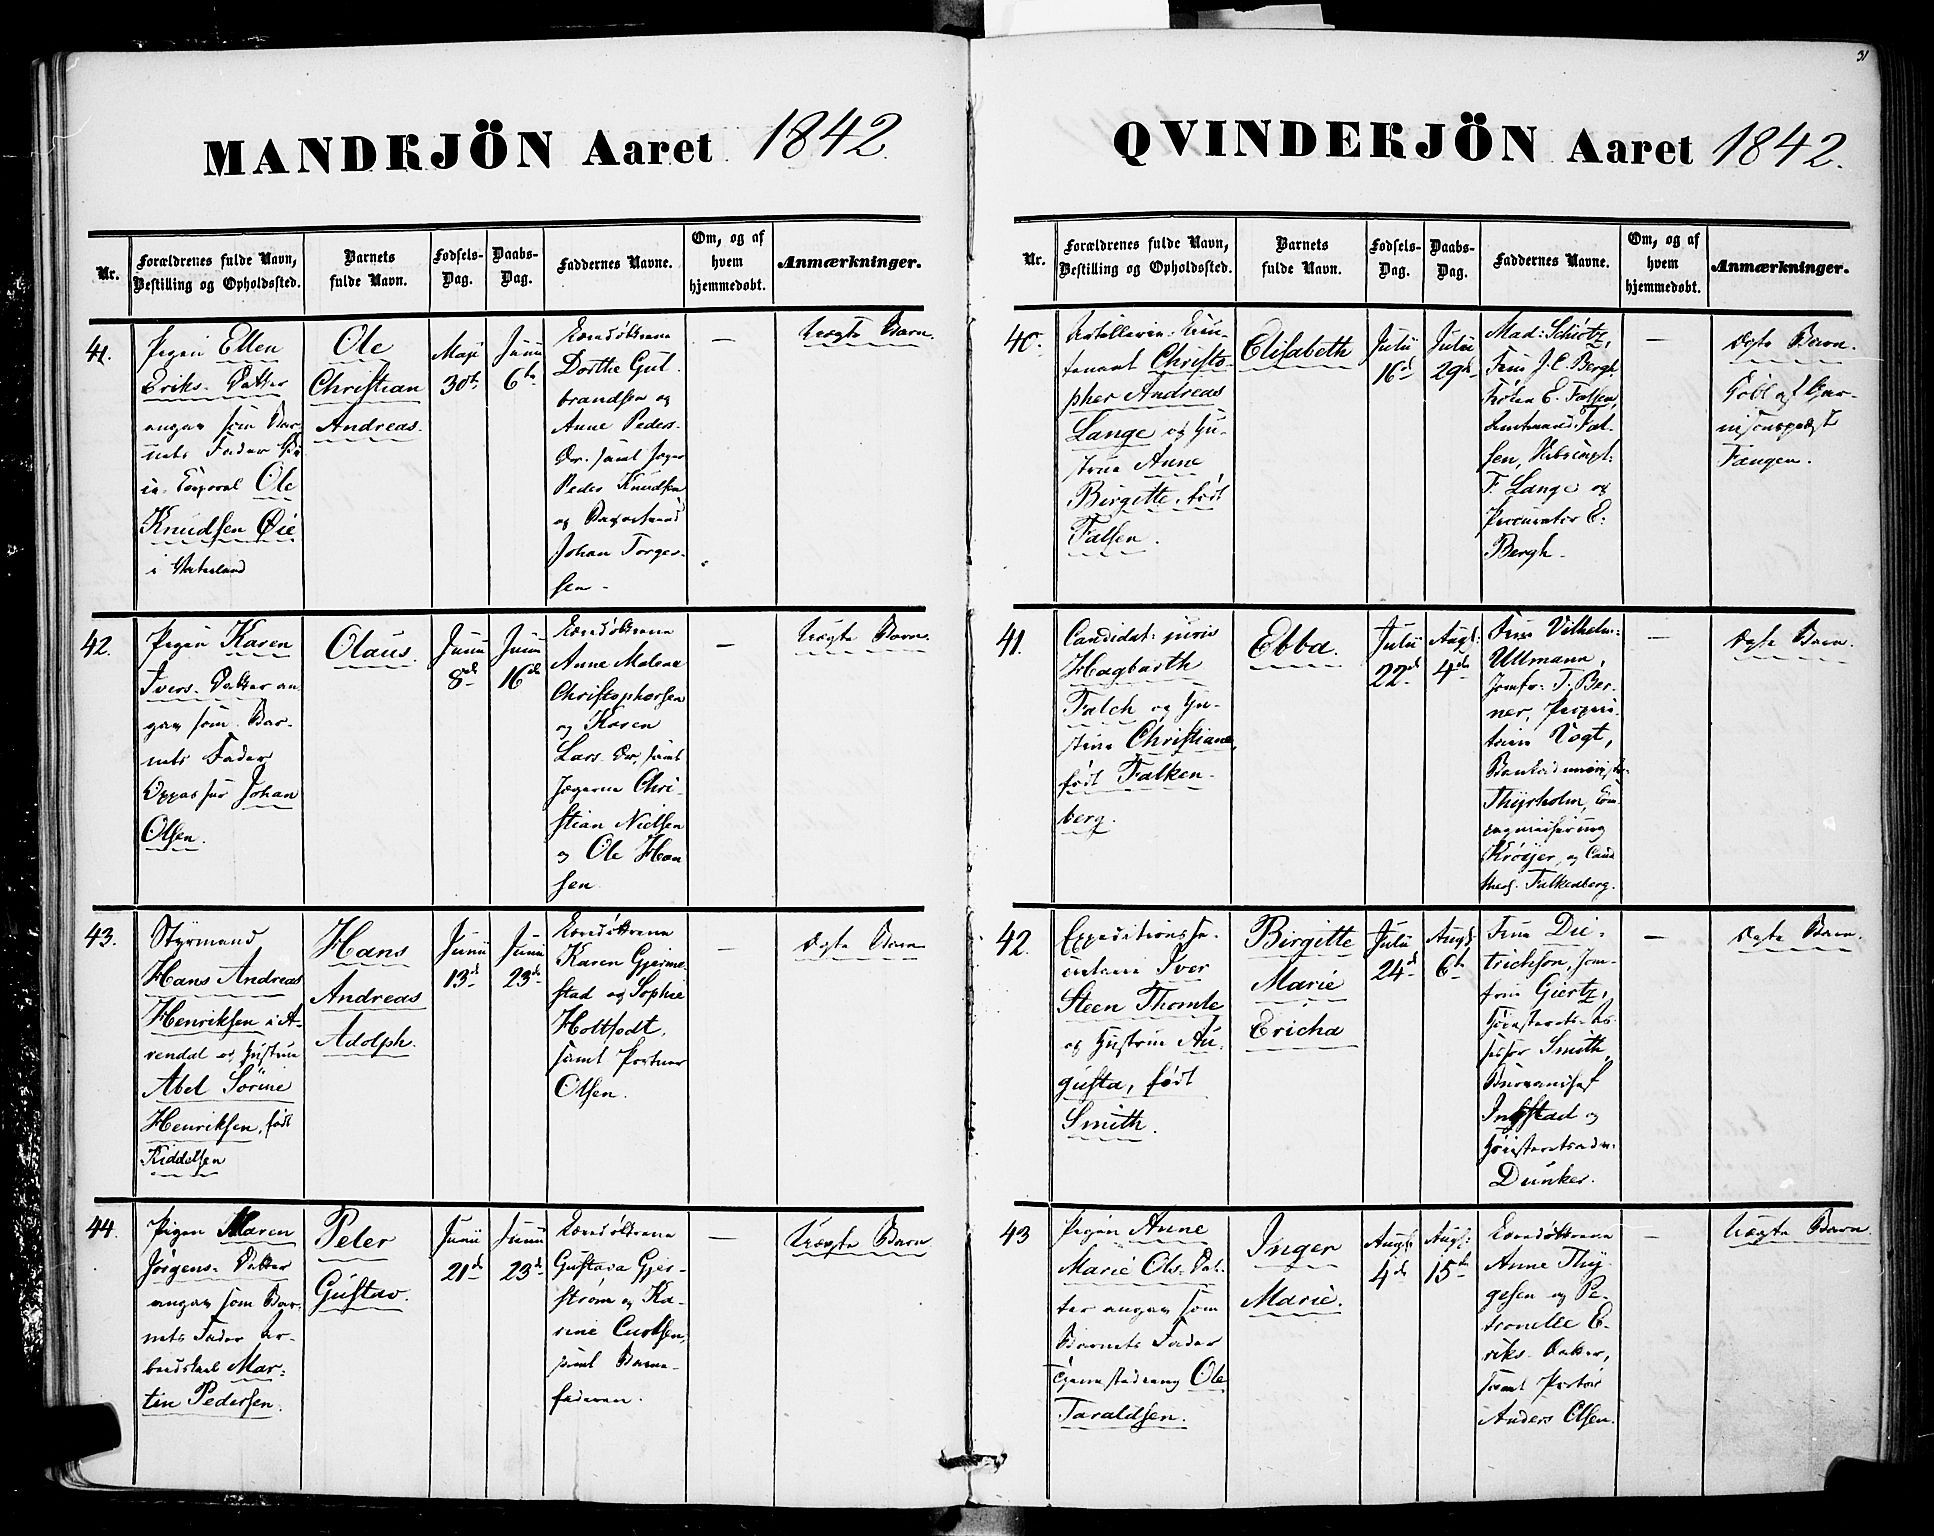 31
MANDKJÖN Aaret 1842.
Nr.
Forældrenes fulde Navn,
Bestilling og Opholdssted.
Barnets
fulde Navn.
Fødsels-
Dag.
Daabs-
Dag.
Faddernes Navne.
Om, og af
hvem
hjemmedøbt.
Anmærkninger.
41.
Pigen Ellen
Eriks-Datter
angav som Bar-
nets Fader
Corporal Ole
Knudsen Øie
i Vaterland
Ole
Christian
Andreas.
Maji
30te
Junii
6te
Dorthe Gul-
brandsen og
Anne Peders-
Dr. samt Jæger
Peder Knudsen
og
Johan Torger-
sen
—
Uægte Barn.
42.
Pigen Karen
Ivers-Datter an-
gav som Bar-
nets Fader
Oppasser Johan
Olsen.
Olaus.
Junii
8de
Junii
16de
Anne Malene
Christophersen
og Karen
Lars-Dr. samt
Jægerne Chri-
stian Nielsen
og Ole Han-
sen.
—
Uægte Barn.
43.
Styrmand
Hans Andreas
Henriksen i A-
rendal og Hustrue
Abel Sörine
Henriksen, født
Kiddelsen
Hans
Andreas
Adolph.
Junii
13de
Junii
23de
Karen Gjerme-
stad og Sophie
Holtfodt,
samt Portner
Olsen.
—
Ægte Barn.
44.
Pigen Maren
Jörgens-Datter
angav som Bar-
nets Fader Ar-
beidskarl Mar-
tin Pedersen.
Peter
Gustav.
Junii
21de
Junii
23de
Gustava Gjer-
strøm og Ka-
rine Curtsen,
samt Barne-
faderen.
—
Uægte Barn.
QVINDEKJÖN Aaret 1842.
Nr.
Forældrenes fulde Navn,
Bestilling og Opholdssted.
Barnets
fulde Navn.
Fødsels-
Dag.
Daabs-
Dag.
Faddernes Navne.
Om, og af
hvem
hjemmedøbt.
Anmærkninger.
40.
Artillerie-Lieu-
tenant Christo-
pher Andreas
Lange og Hu-
strue Anne
Birgitte, født
Falsen.
Elisabeth
Julii
16de
Julii
29de
Mad: Schiøtz,
Frue J. C. Bergh,
Frøken E. Falsen,
Amtmand Fal-
sen,
F. Lange og
Procurator E.
Bergh.
—
Ægte Barn.
Døbt af Gar-
nisonspræst
Fangen.
41.
Candidat: juris
Hagbarth
Falch og Hu-
strue Christiane,
født Falken-
berg.
Ebba.
Julii
22de
Augs:
4de
Frue Vilhelm:
Ullmann,
Jomfr: T. Ber-
ner,
Vogt,
Thyrholm,
Krøijer, og Cand
theol. Falkenberg.
—
Ægte Barn.
42.
Expeditionsse-
cretaire Iver
Steen Thomle
og Hustrue Au-
gusta, født
Smith.
Birgitte
Marie
Ericha
Julii
24de
Augs:
6te
Frue Die-
trichson, Jom-
frue Giertz,
Høiesterets-As-
sessor Smith,
Bureauchef
Ingstad og
Høiesteretsadv:
Dunker.
—
Ægte Barn.
43
Pigen Anne
Marie Ols-Dat-
ter angav som
Barnets Fader
Ole
Taraldsen.
Inger
Marie.
Augs:
4de
Augs:
15de
Anne Thy-
gesen og Pe-
tronelle E-
riks-Datter,
samt Portør
Anders Olsen.
—
Uægte Barn.